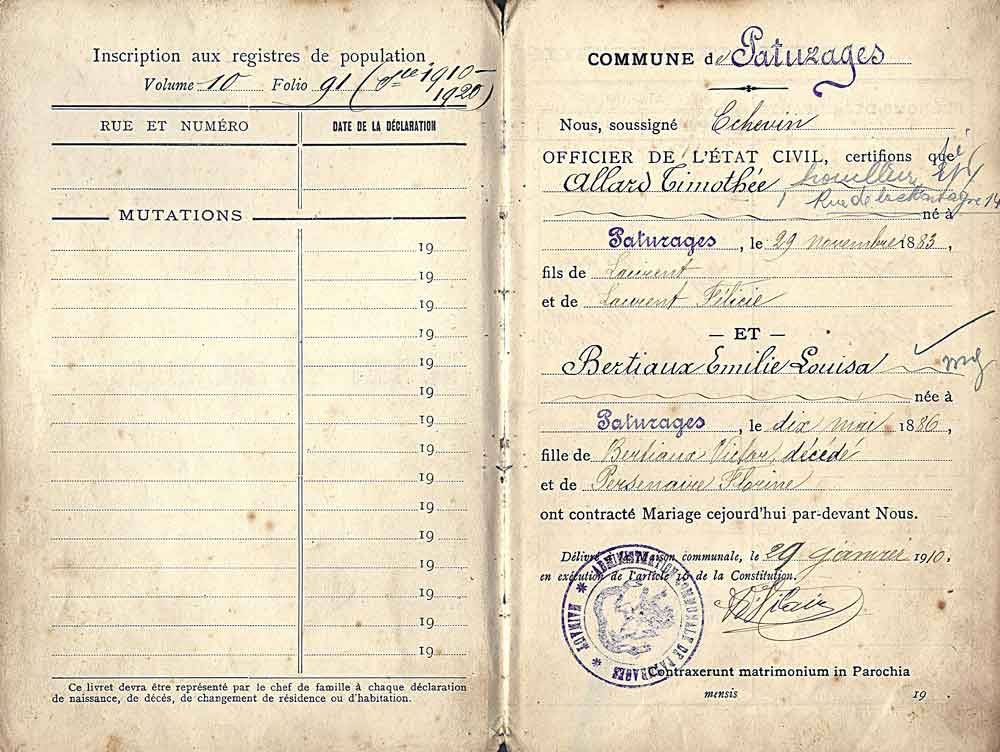 Inscription aux registres de population.
Volume 10 Folio 91 ( 1910-
1920)
RUE ET NUMÉRO
DATE DE LA DÉCLARATION
MUTATIONS
19
19
19
19
19
19
19
19
19
19
19
19
19
19
19
Ce livret devra être représenté par le chef de famille à chaque déclaration
de naissance, de décès, de changement de résidence ou d'habitation.
COMMUNE de Paturages
Nous, soussigné Echevin
OFFICIER DE L'ÉTAT CIVIL, certifions que
Allard Timothée houilleur
Rue de la Montagne 14
né à
Paturages, le 29 novembre 1883,
fils de Laurent
et de Laurent Félicie
— ET —
Bertiaux Emilie Louisa
née à
Paturages, le dix mai 1886,
fille de Bertiaux Victor, décédé
et de Persenaire Florine
ont contracté Mariage cejourd'hui par-devant Nous.
Délivré à la Maison communale, le 29 janvier 1910.
en exécution de l'article 16 de la Constitution.
ADMINISTRATION COMMUNALE DE PATURAGES
* HAINAUT *
Contraxerunt matrimonium in Parochia
mensis 19